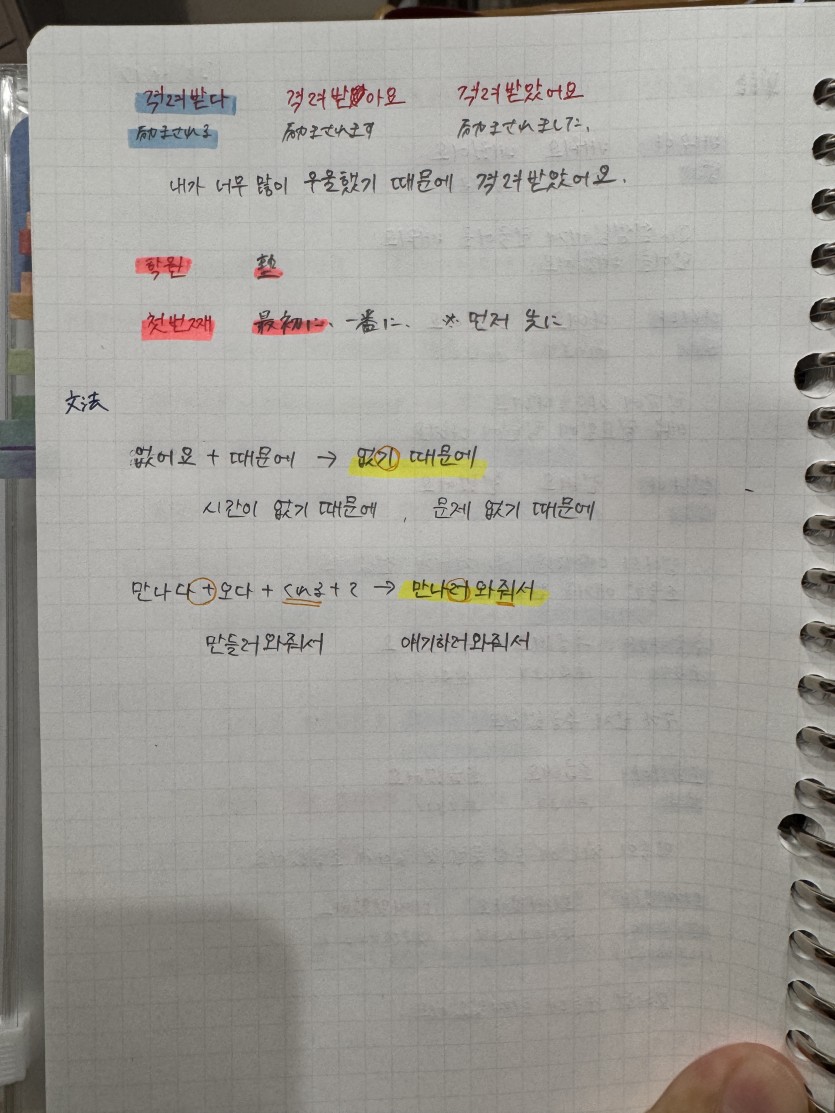 격려받다 격려받아요 격려받았어요
励まされる 励まされます 励まされました。
내가 너무 많이 우울했기 때문에 격려받았어요.
학원 塾
첫번째 最初に、一番に、 ※ 먼저 先に
文法
없어요 + 때문에 → 없기 때문에
시간이 없기 때문에 , 문제 없기 때문에
만나다 + 오다 + くれる + て → 만나러 와줘서
만들러 와줘서 얘기하러와줘서